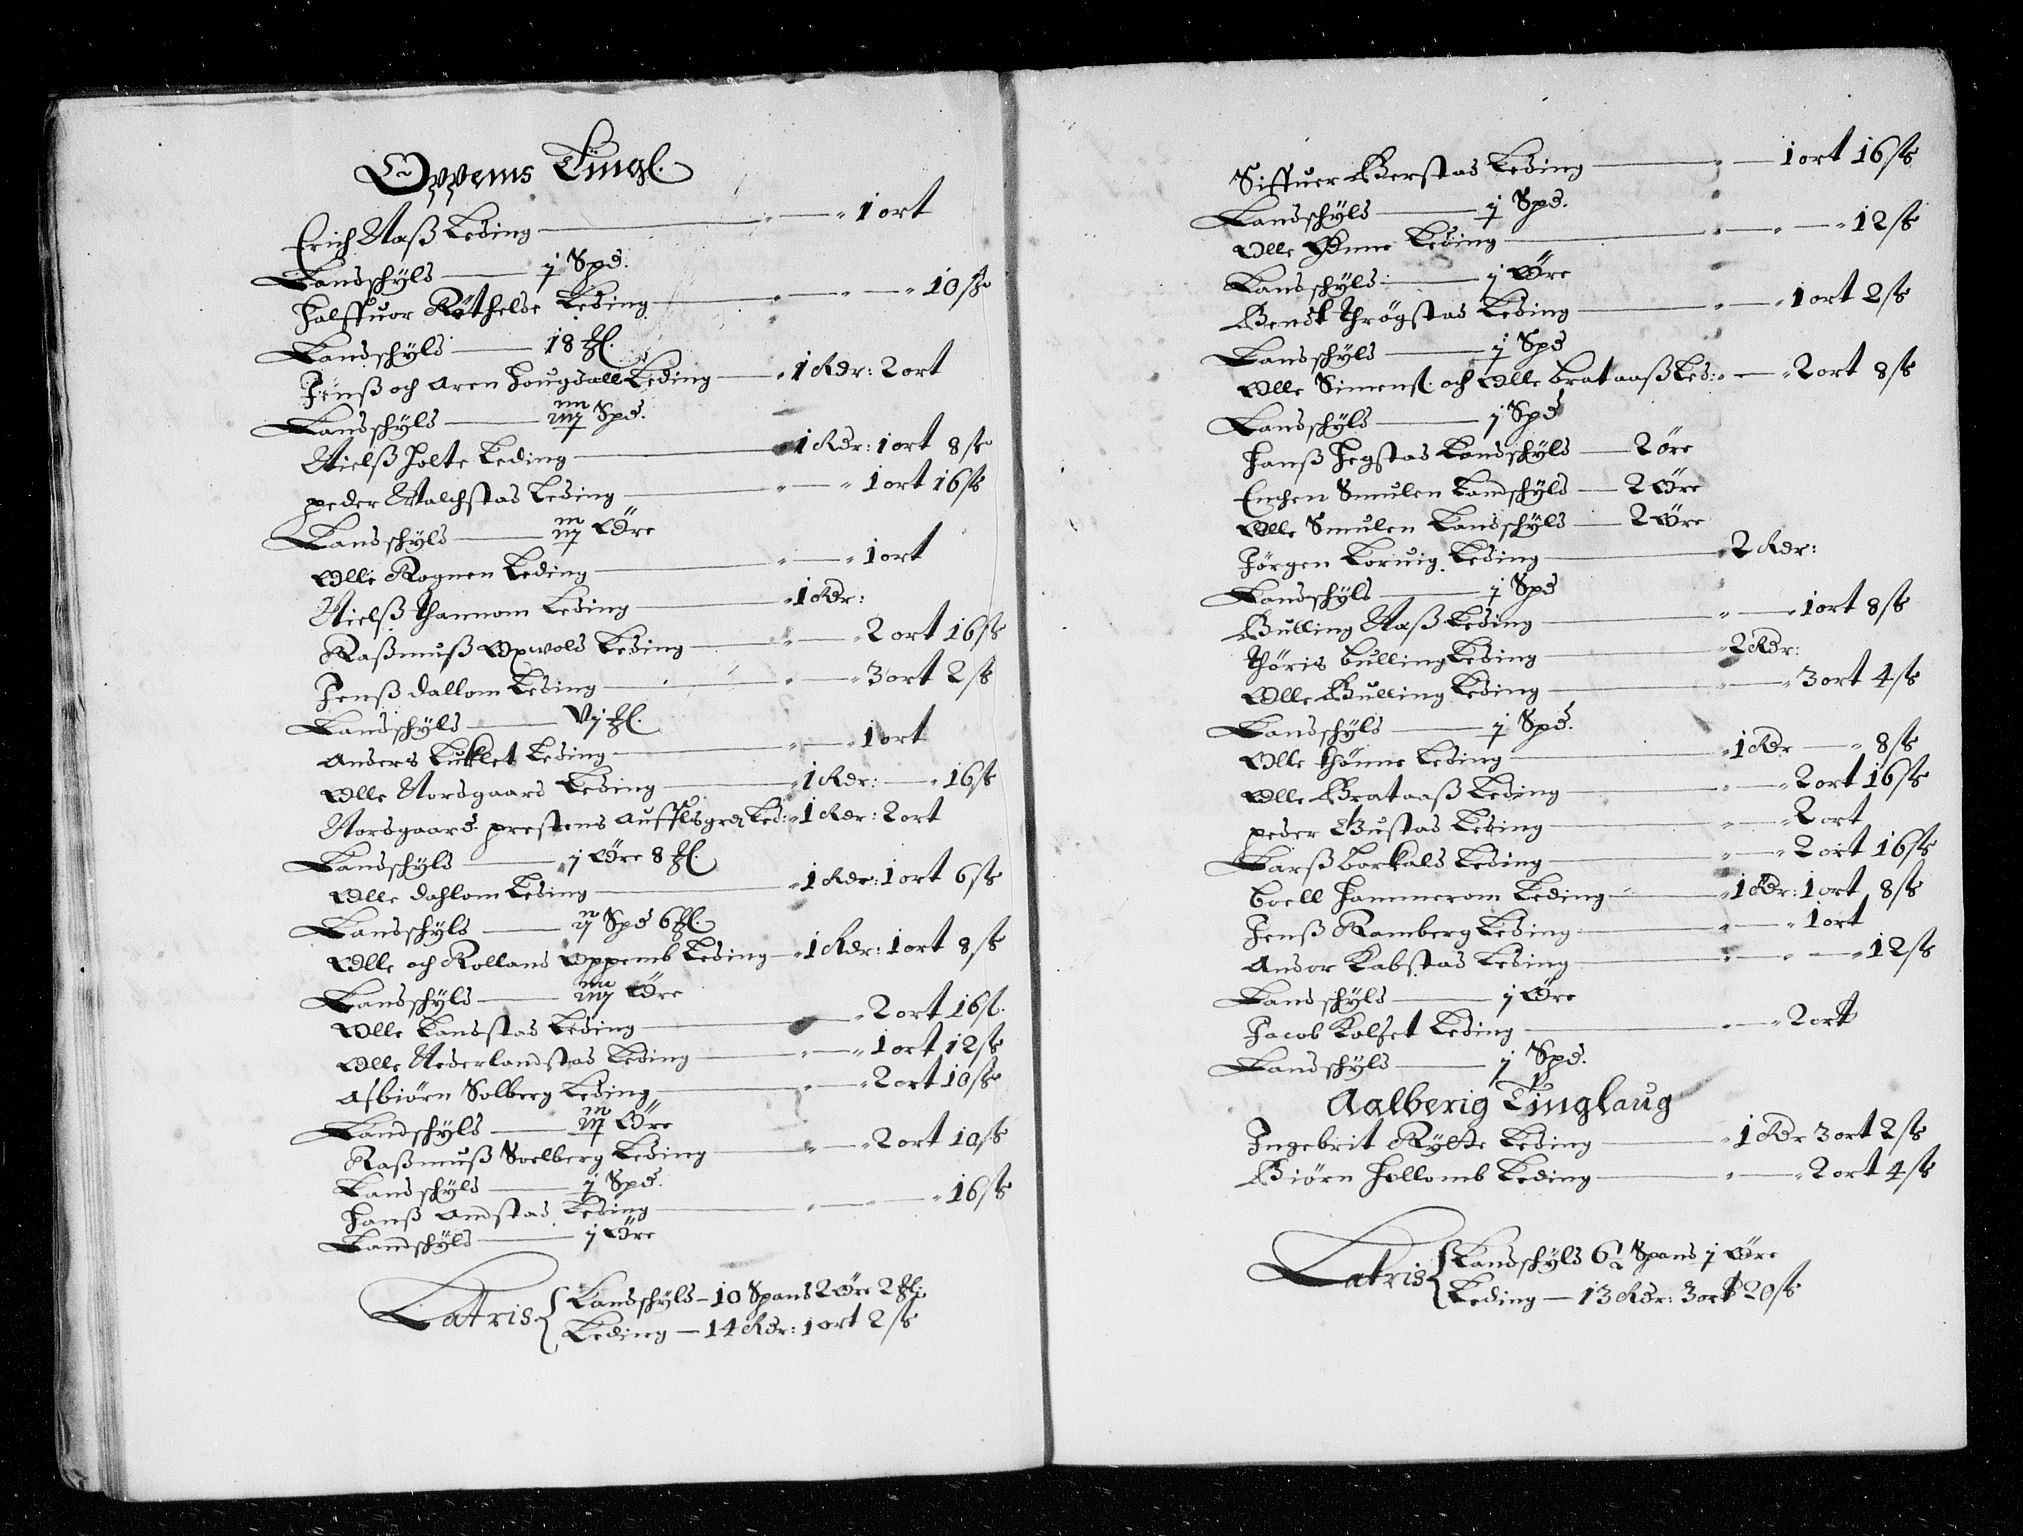 Oppems Tingl.
Erich Naaß Leding — 1 ort
Landschyld — j Spd.
Halffuor Røthelde Leding — 10 ß
Landschyld — 18 ml.
Jenß och Aren Hougdall Leding — 1 Rdr: 2 ort
Landschyld — iiij Spd.
Nielß Holte Leding — 1 Rdr: 1 ort 8 ß
peder Walchstad Leding — 1 ort 16 ß
Landschyld — iij Øre
Olle Rognen Leding — 1 ort
Nielß thannom Leding — 1 Rdr:
Raßmuß Opwold Leding — 2 ort 16 ß
Jenß dallom Leding — 3 ort 2 ß
Landschyld — vj ml.
Anders Lukket Leding — 1 ort
Olle Norsgaard Leding — 1 Rdr: — 16 ß
Norsgaard prestens Led: 1 Rdr: 2 ort
Landschyld — j Øre 8 ml.
Olle dahlom Leding — 1 Rdr: 1 ort 6 ß
Landschyld — ij Spd 6 ml.
Olle och Rolland Oppemb Leding — 1 Rdr: 1 ort 8 ß
Landschyld — iiij Øre
Olle Landstad Leding — 2 ort 16 ß.
Olle Nederlandstad Leding — 1 ort 12 ß
Asbiørn Solberg Leding — 2 ort 10 ß
Landschyld — iij Øre
Raßmuß Soelberg Leding — 2 ort 10 ß
Landschyld — j Spd.
Hanß Andstad Leding — 16 ß
Landschyld — j Øre
Latris { Landschyld – 10 Spand 2 Øre 2 ml.
Leding — 14 Rdr: 1 ort 2 ß
Siffuer Berstad Leding — 1 ort 16 ß
Landschyld — j Spd.
Olle Leding — 12 ß
Landschyld — j Øre
Bendt thrøgstad Leding — 1 ort 2 ß
Landschyld — j Spd
Olle Simens. och Olle brataaß Led: — 2 ort 8 ß
Landschyld — j Spd
Hanß Hegstad Landschyld — 2 øre
Enchen Smulen Landschyld — 2 Øre
Olle Smulen Landschyld — 2 Øre
Jørgen Loruig Leding — 2 Rdr:
Landschyld — j Spd
Bulling Naaß Leding — 1 ort 8 ß
thøris bulling Leding — 2 Rdr:
Olle Bulling Leding — 3 ort 4 ß
Landschyld — j Spd.
Olle thønne Leding — 1 Rdr — 8 ß
Olle Brataaß Leding — 2 ort 16 ß
peder Gustad Leding — 2 ort
Larß barkald Leding — 2 ort 16 ß
boell Hammerom Leding — 1 Rdr: 1 ort 8 ß
Jenß Ramberg Leding — 1 ort
Ander Kabstad Leding — 12 ß
Landschyld — j Øre
Jacob Kolset Leding — 2 ort
Landschyld — j Spd.
Aalberig Tinglaug
Ingebrit Rylte Leding — 1 Rdr 3 ort 2 ß
Biørn Hollomb Leding — 2 ort 4 ß
Latris { Landschyld 6½ Spand j Øre
Leding — 13 Rdr: 3 ort 20 ß